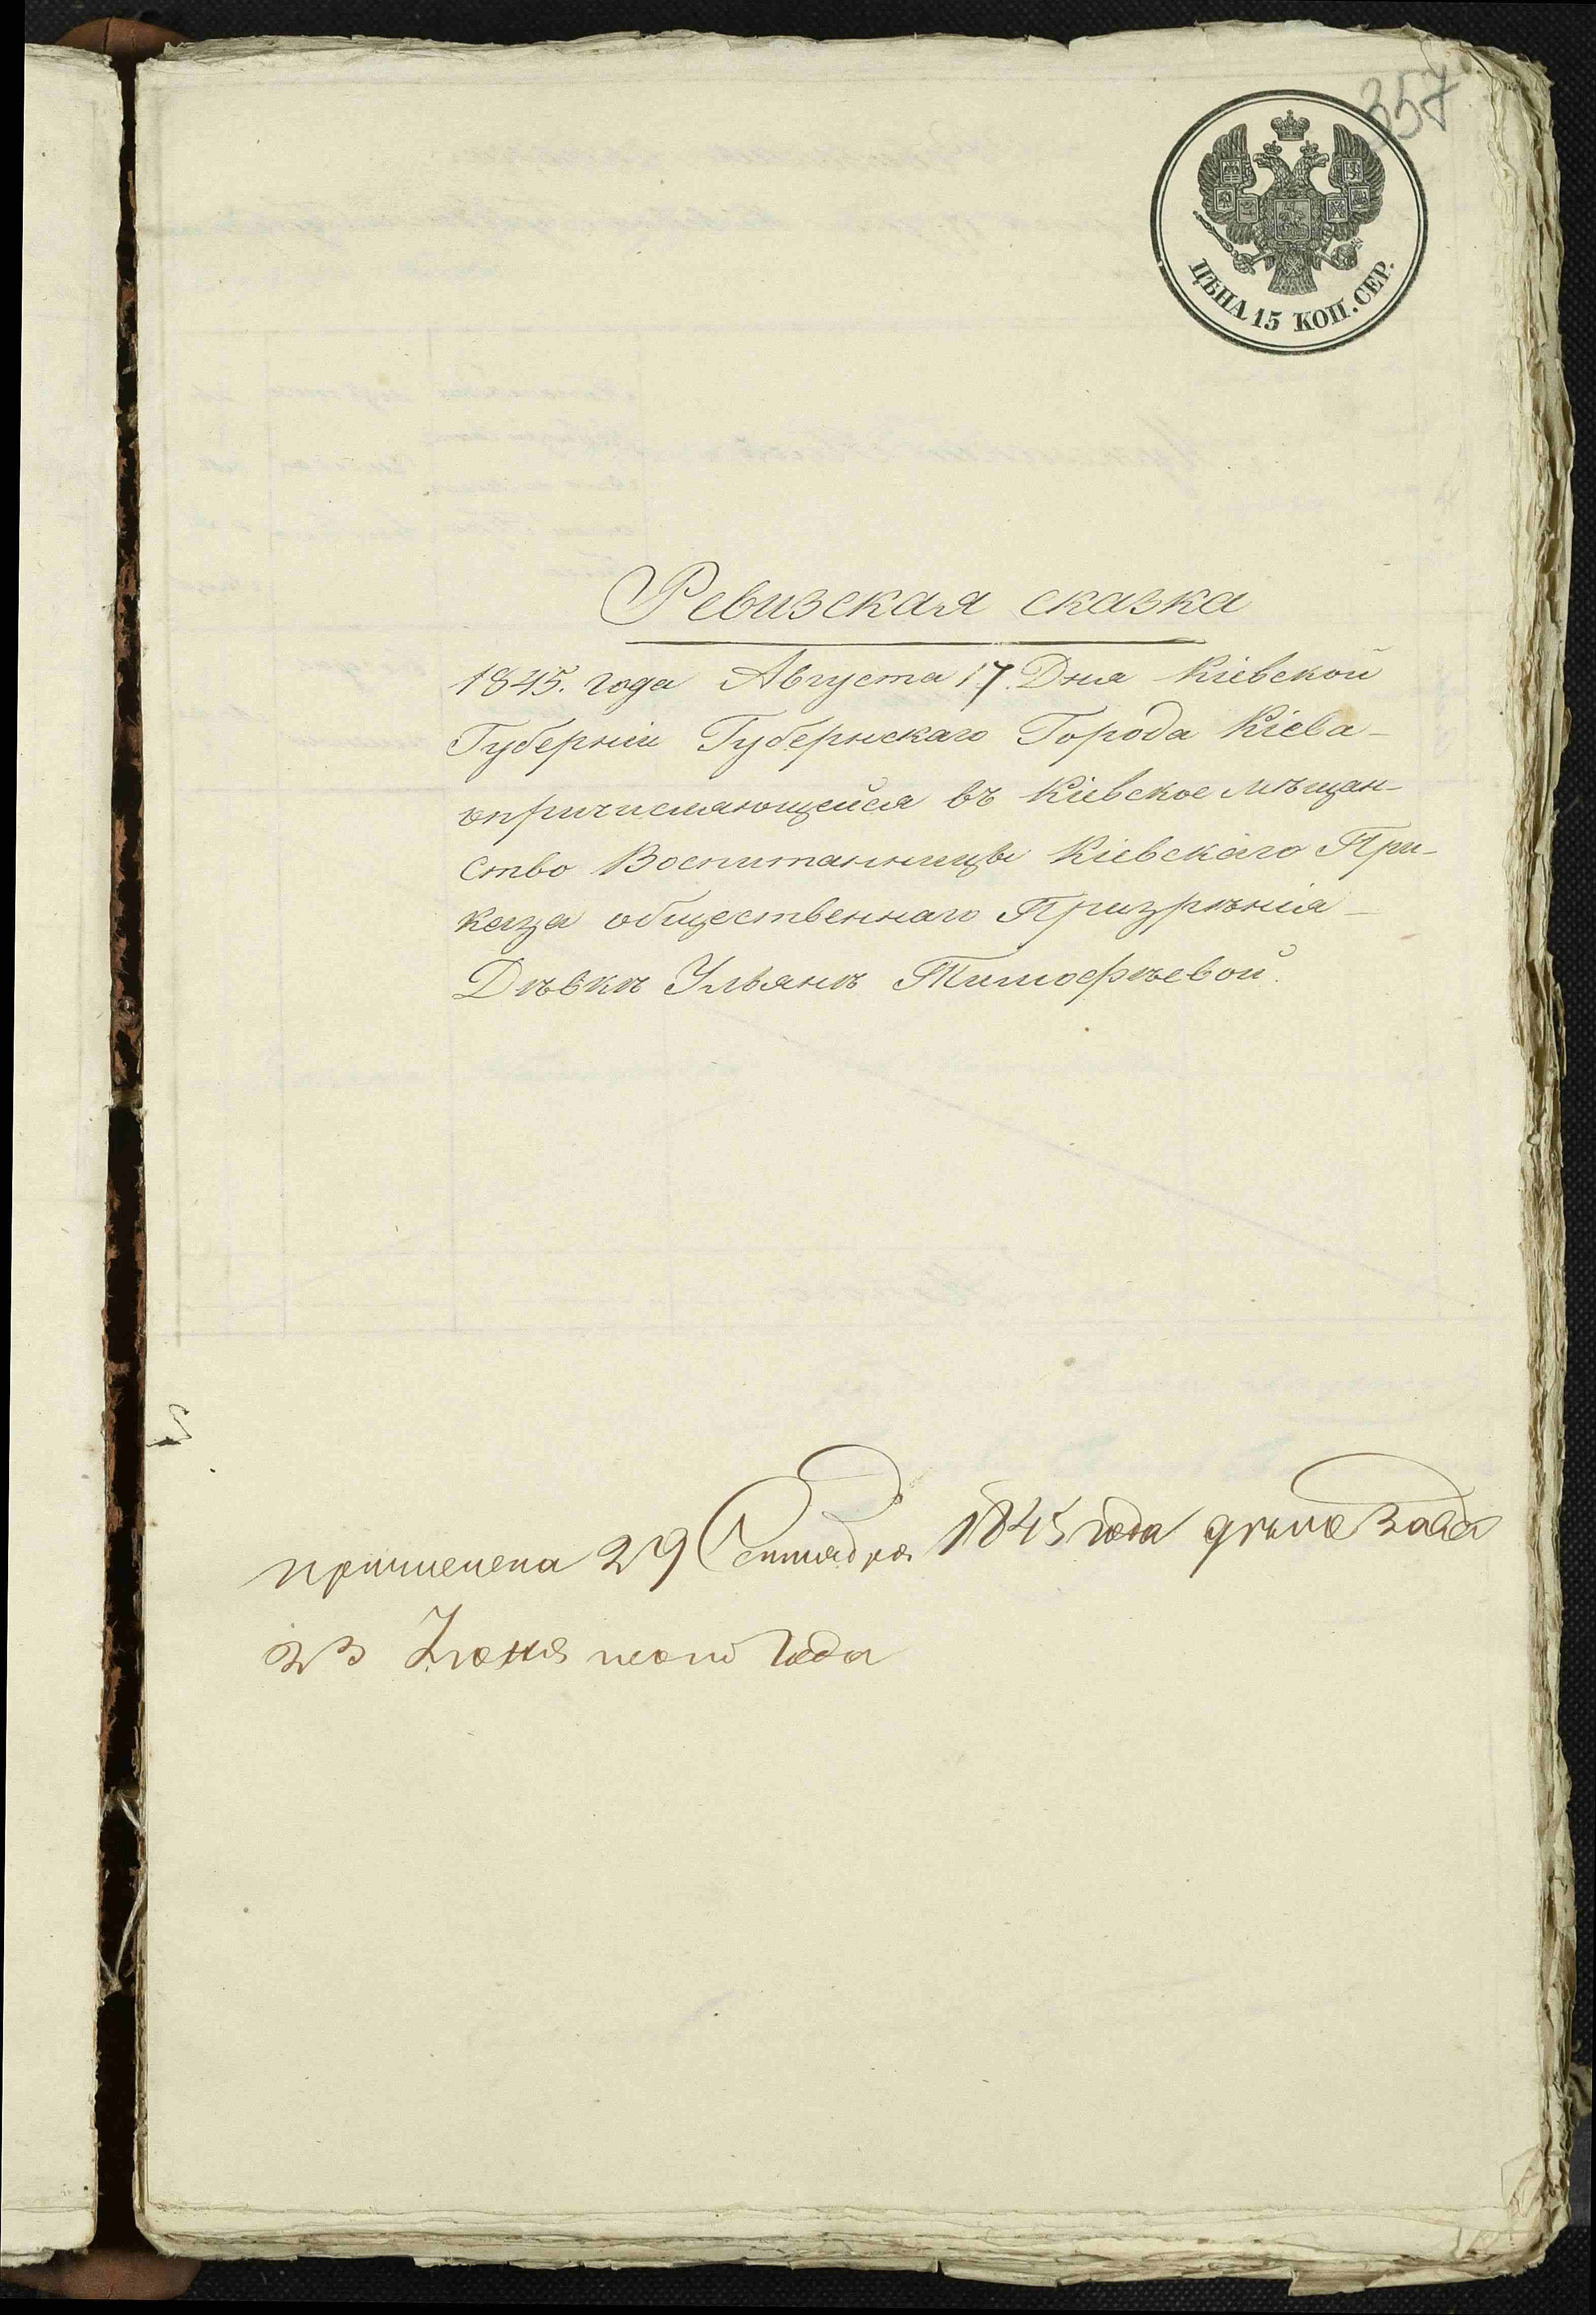 357
ЦѢНА 15 КОП. СЕР.
Ревизская сказка
1845. года Августа 17. Дня Кіевской
Губерніи Губернскаго Города Кіева –
о причисляющейся въ Кіевское мѣщан-
ство Воспитанницы Кіевскаго При-
каза общественнаго Призрѣнія –
Дѣвкѣ Ульянѣ Тимофѣевой.
причислена 29 Сентября 1845 года
23 Іюня того года